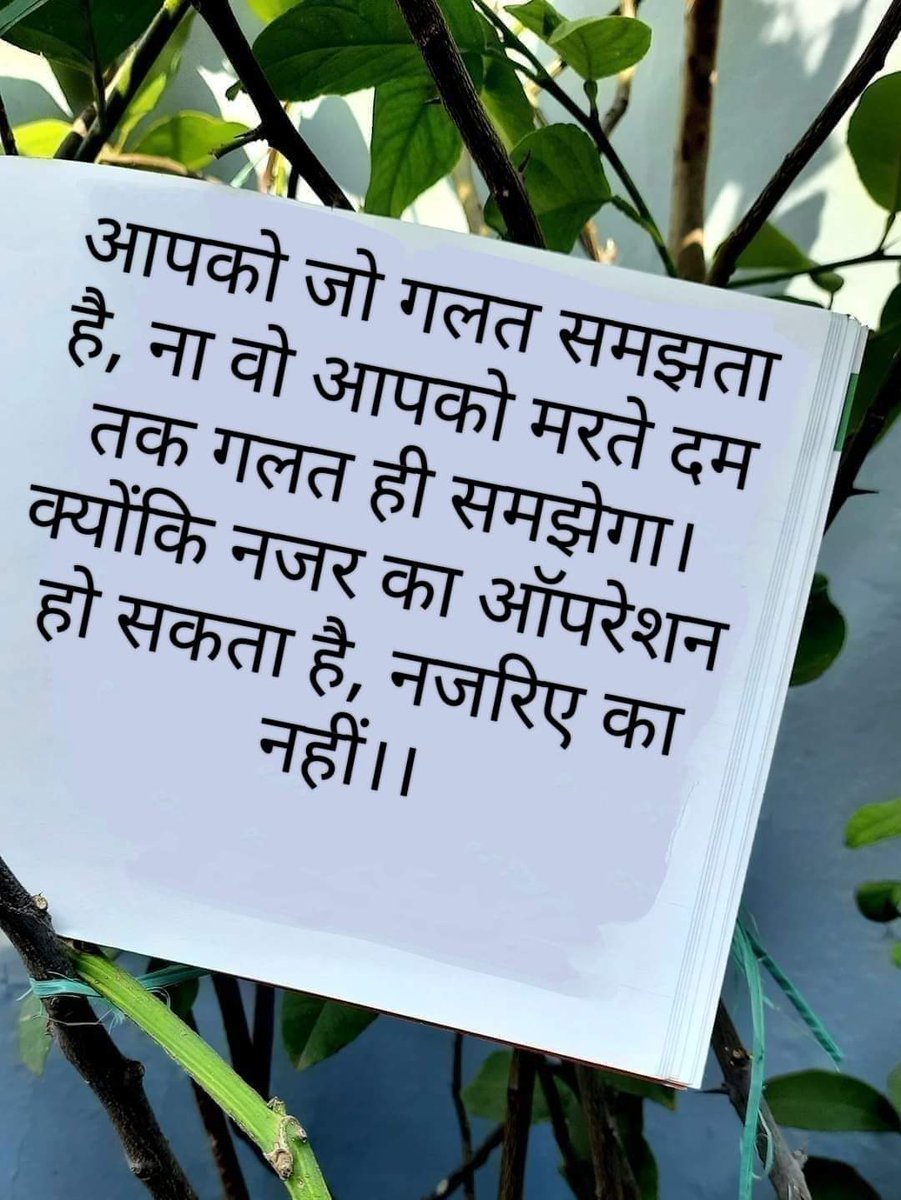 आपको जो गलत समझता
है, ना वो आपको मरते दम
तक गलत ही समझेगा।
क्योंकि नजर का ऑपरेशन
हो सकता है, नजरिए का
नहीं।।